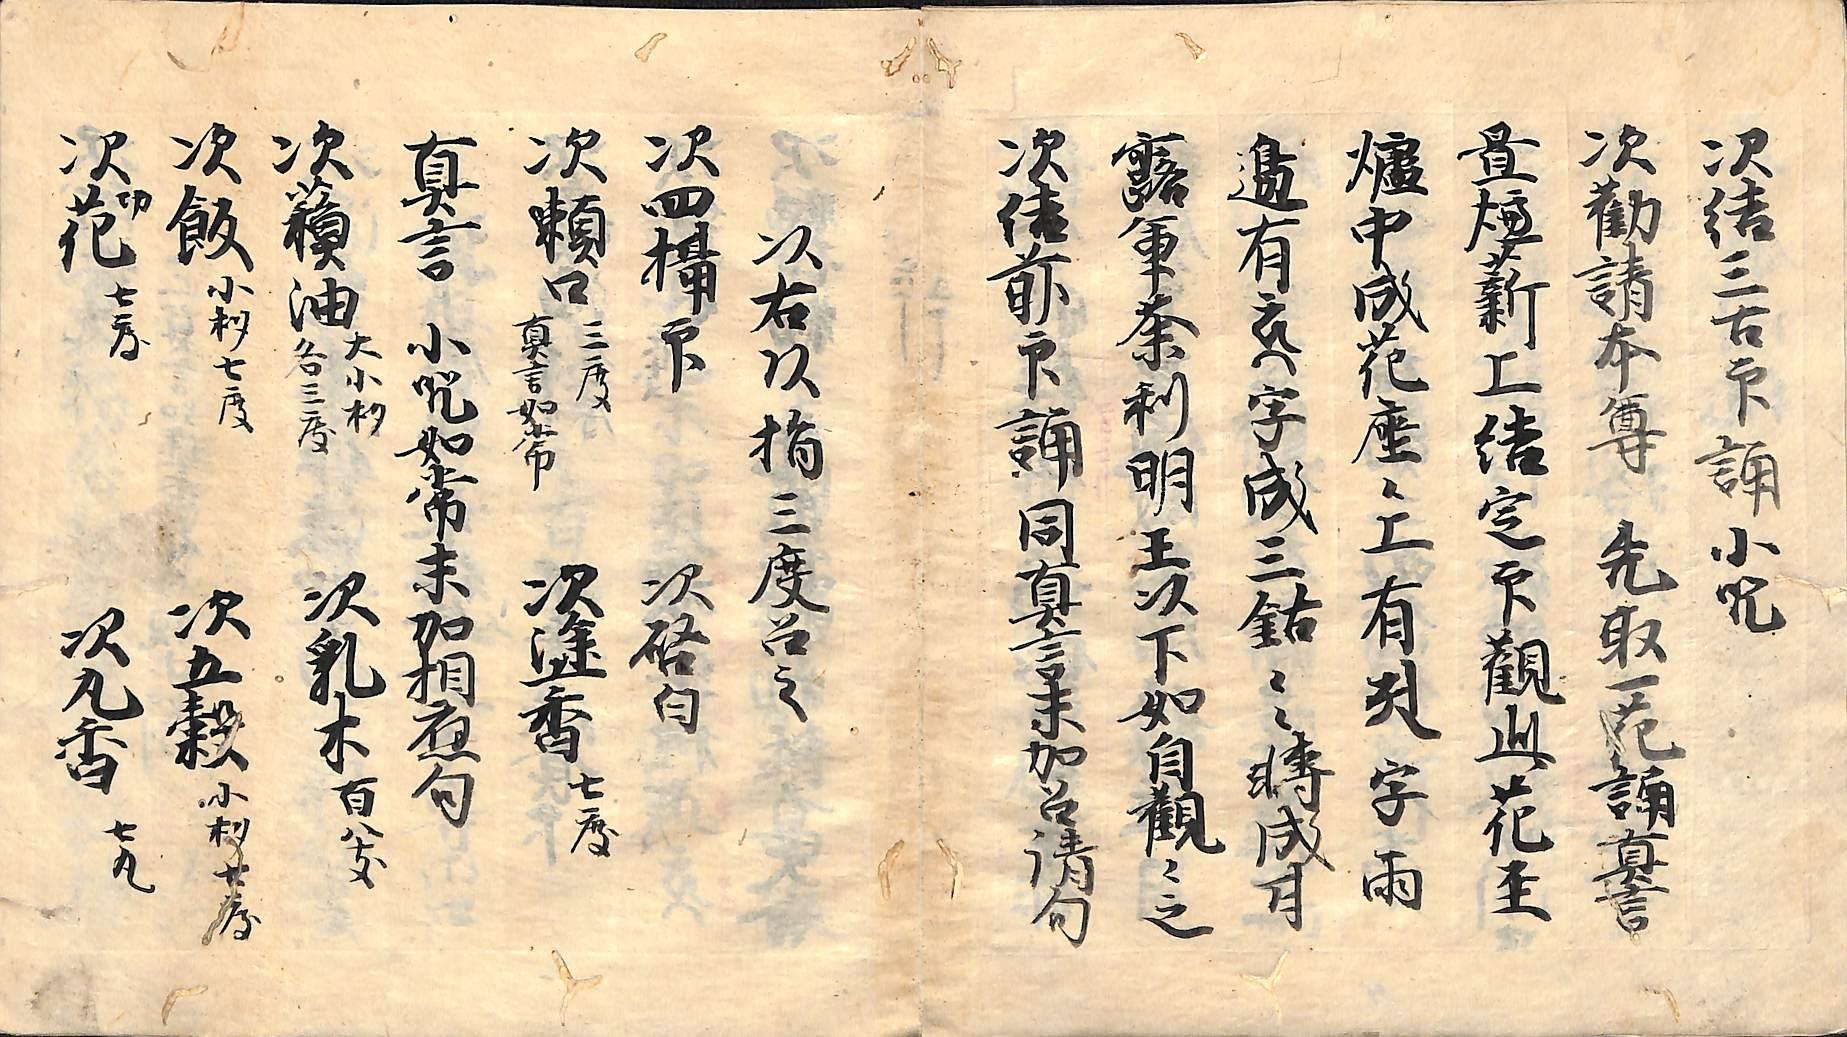 次結三古印誦小咒
次勸請本尊 先取一花誦真言
置爐薪上結定印觀此花至
爐中成花座〻上有 字兩
邊有 字成三鈷〻〻轉成甘
露軍荼利明王以下如自觀〻之
次結前印誦同真言末加召請句
以右頭指三度召之
次四攝印 次啓白
次嗽口 三度 真言如常 次塗香 七度
真言 小咒如常末加相應句
次蘇油 大小杓各三度 次乳木 百八支
次飯 小杓七度 次五穀 小杓廿一度
次切花 七度 次丸香 七丸